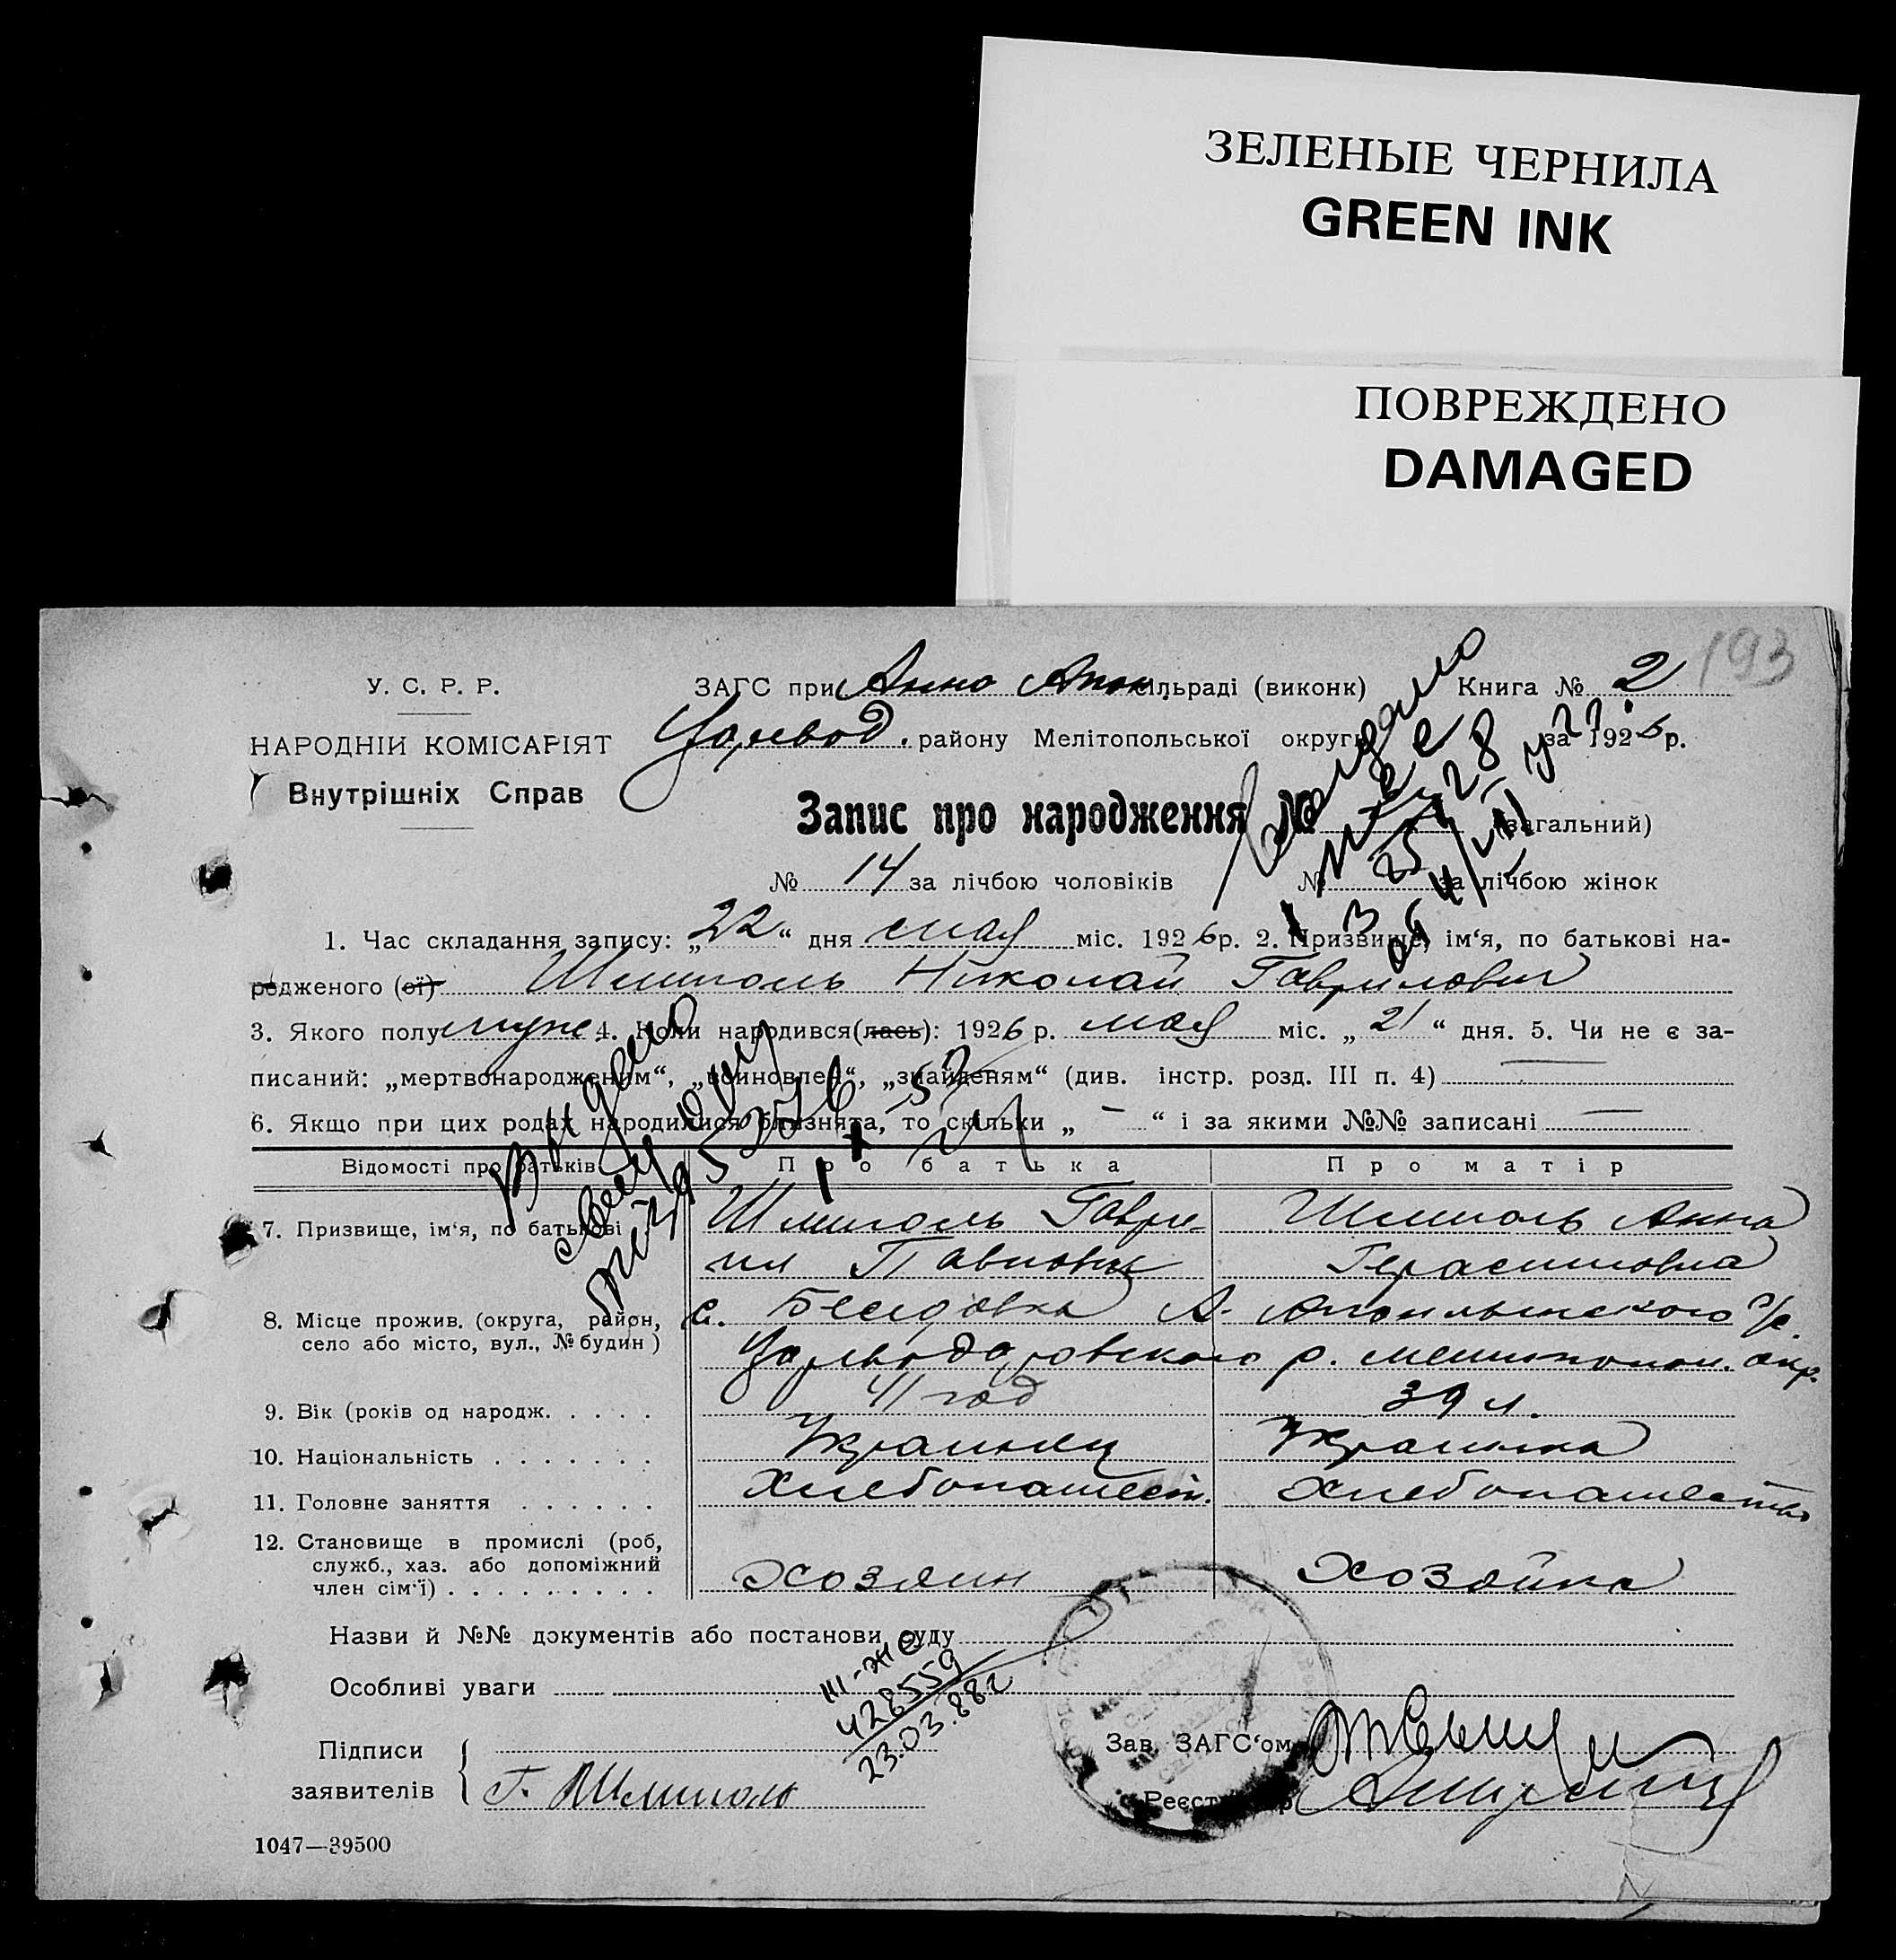 ЗЕЛЕНЫЕ ЧЕРНИЛА
GREEN INK
ПОВРЕЖДЕНО
DAMAGED
193
У. С. Р. Р.
НАРОДНІЙ КОМІСАРІЯТ
Внутрішніх Справ
ЗАГС при Анно сільраді (виконк) Книга № 2
району Мелітопольської округи за 1926 р.
Запис про народження № (загальний)
№ 14 за лічбою чоловіків № за лічбою жінок
1. Час складання запису: „22“ дня мая міс. 1926 р. 2. Призвище, ім‘я, по батькові на-
родженого (ої) Шмиголь Николай Гаврилович
3. Якого полу муж 4. Коли народився(лась): 1926 р. мая міс. „21“ дня. 5. Чи не є за-
писаний: „мертвонародженим“, „знайденям“ (див. інстр. розд. III п. 4)
6. Якщо при цих родах народилися близнята, то скільки „ – “ і за якими №№ записані —
Відомості про батьків Про батька Про матір
7. Призвище, ім‘я, по батькові
Шмиголь Гаври- Шмиголь Анна
ил Павлович Герасимовна
8. Місце прожив. (округа, район,
село або місто, вул., № будин)
с. А. с/с.
р. окр.
9. Вік (років од народж. . . . . 41 год 39 л.
10. Національність . . . . . . . Украинец Украинка
11. Головне заняття . . . . . . Хлебопашест. Хлебопашество
12. Становище в промислі (роб,
служб., хаз. або допоміжний
член сім‘ї) . . . . . . . . . Хозяин Хозяйка
Назви й №№ документів або постанови суду
Особливі уваги
III-ЖС
428559
23.03.882
Підписи
заявителів
Г. Шмиголь
Зав. ЗАГС‘ом
1047—39500